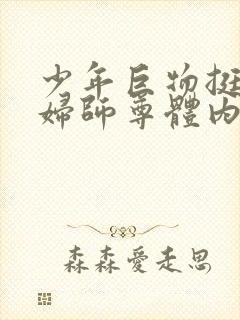 少年巨物挺
婦師尊體內
森森愛走思